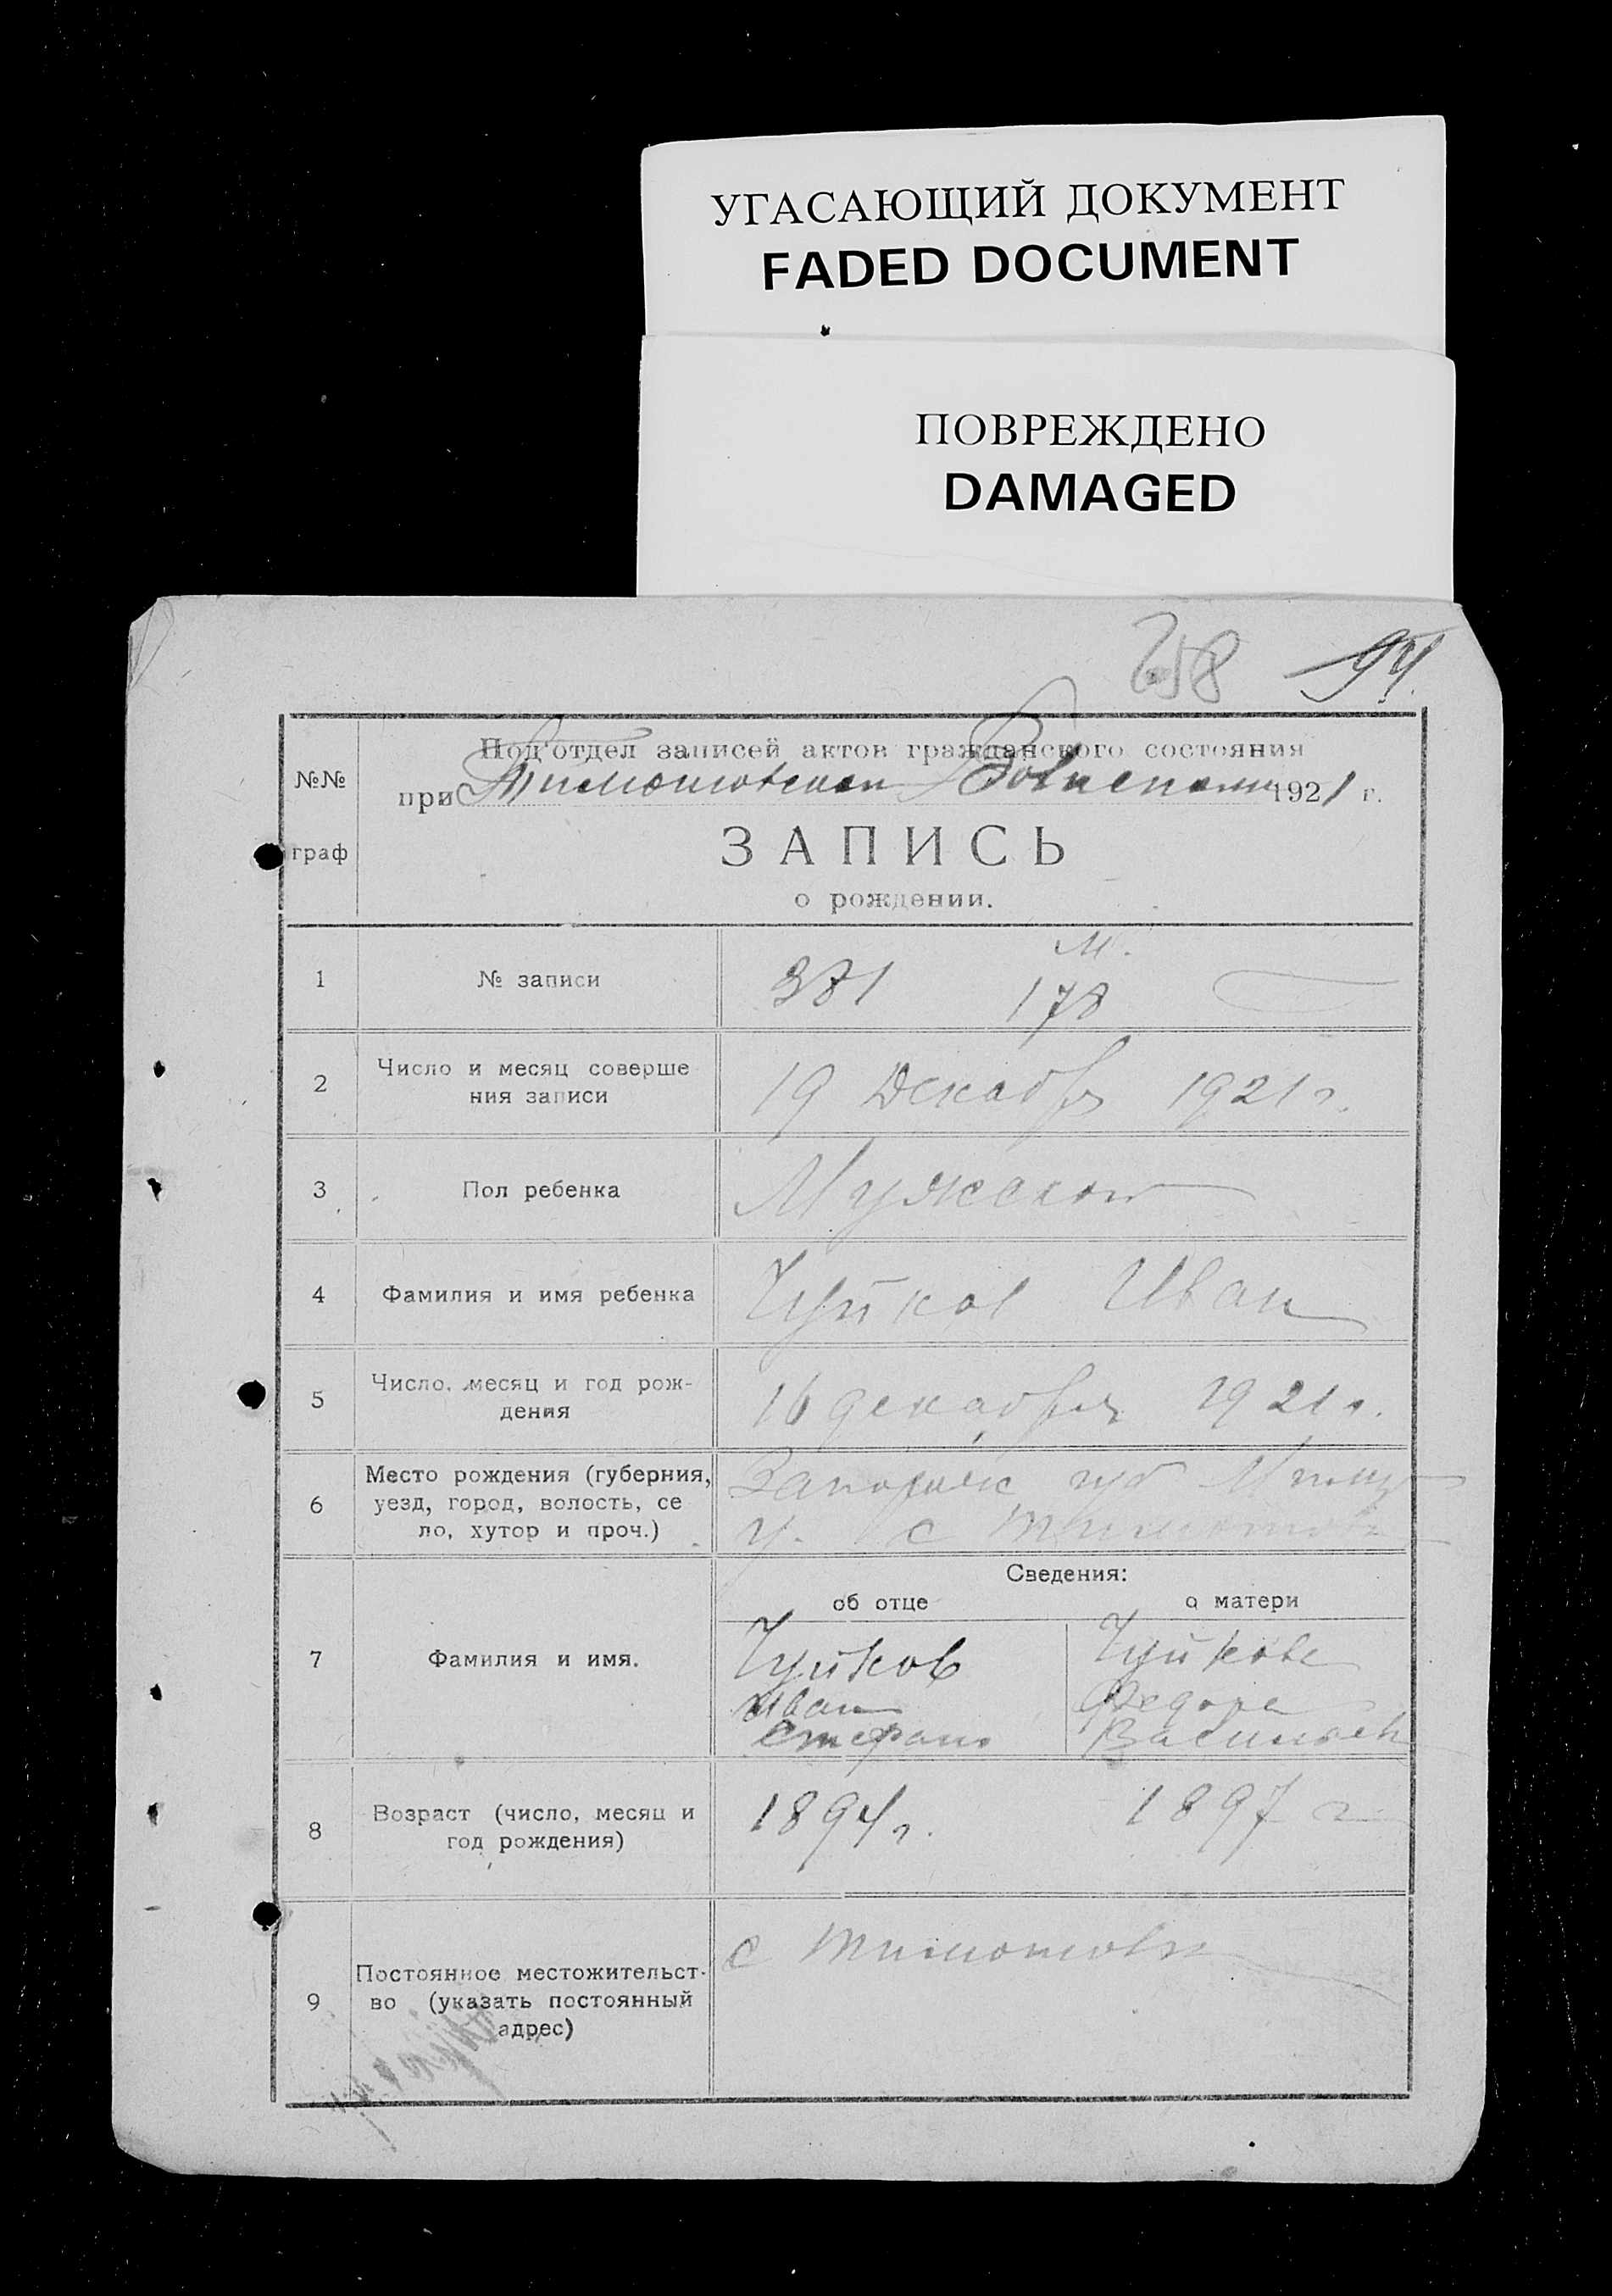 УГАСАЮЩИЙ ДОКУМЕНТ
FADED DOCUMENT
ПОВРЕЖДЕНО
DAMAGED
258 94
№№ граф
Под'отдел записей актов гражданского состояния
при Тимошовском Волисполк 1921 г.
ЗАПИСЬ
о рождении.
1 № записи 381 М. 178
2 Число и месяц соверше
ния записи 19 Декабр 1921 г.
3 Пол ребенка Мужской
4 Фамилия и имя ребенка Чуйков Иван
5 Число, месяц и год рож-
дения 16 декабря 1921 г.
6 Место рождения (губерния,
уезд, город, волость, се
ло, хутор и проч.)
Запорожс губ
у. с
Сведения:
об отце о матери
7 Фамилия и имя.
Чуйков Чуйкова
Иван Федора
Стефано Васильев
8 Возраст (число, месяц и
год рождения) 1894 г. 1897 г
9 Постоянное местожительст-
во (указать постоянный
адрес)
с Тимошовк